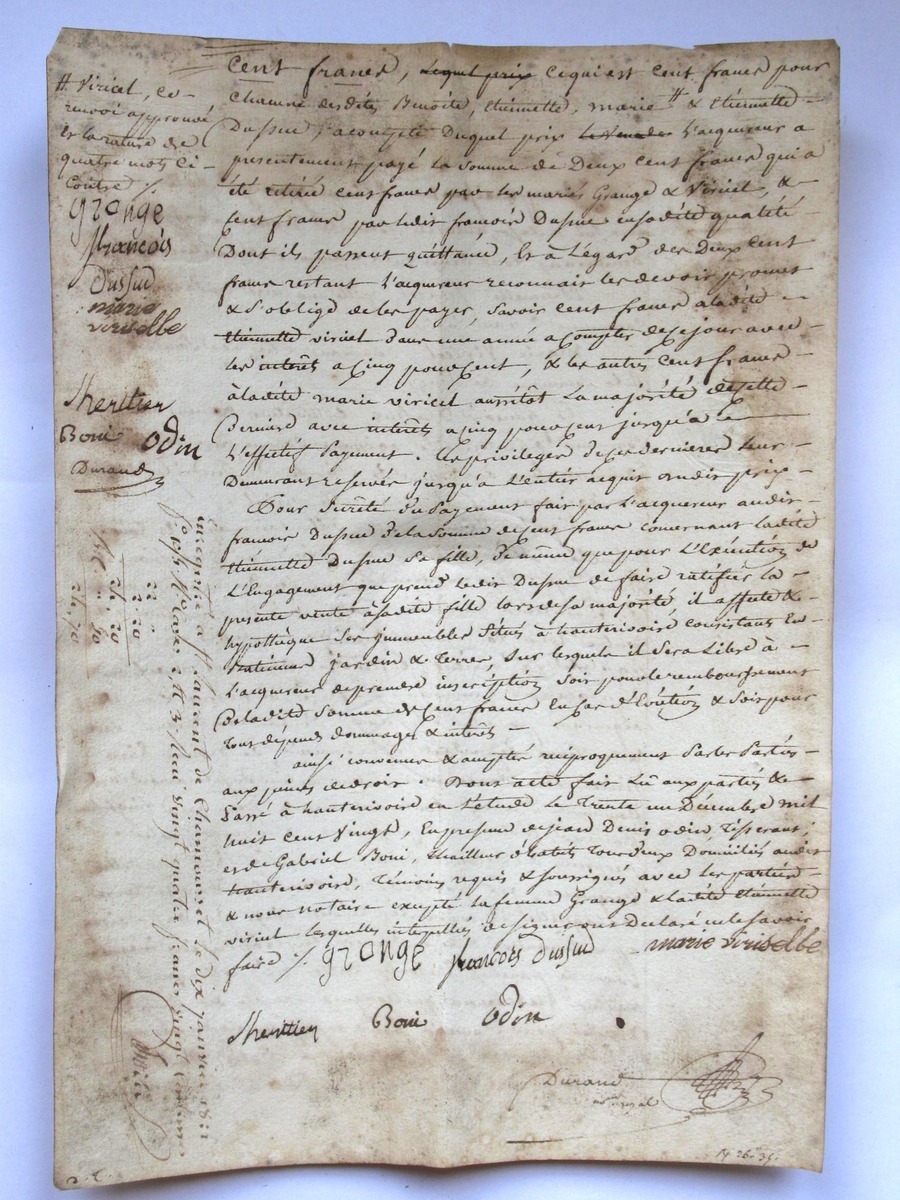 cent francs, lequel prix ce qui est cent francs pour
chacune desdites Benoite, Etiennette, marie # & Etiennette
Dussud. a compte Duquel prix L'acquereur a
presentement payé la Somme de Deux cent francs qui a
été retirée cent francs par les mariés Grange & Viricel, &
Cent francs par ledit françois Dussud en sadite qualité
Dont ils passent quittance, Et à l'égard des Deux cent
francs restant L'acquereur reconnait les devoir promet
& S'oblige de les payer, Savoir cent francs a ladite
Etiennette viricel dans une année a compter de ce jour avec
les interêts a cinq pour cent, & les autres Cent francs
à ladite marie viricel aussitôt La majorité de cette
Derniere avec interêts a cinq pour cent jusqu'à
L'effectif Payement. Les privileges de ces dernieres leur
Demeurant reservés jusqu'à L'entier acquit dudit prix
Pour Sureté du Payement fait par L'acquereur audit
francois Dussud de la Somme de cent francs concernant ladite
Etiennette Dussud Sa fille, De même que pour L'Exécution de
L'Engagement que prend ledit Dussud de faire ratifier la
presente vente à sadite fille lors de sa majorité, il affecte &
hypothèque Ses immeubles Situés à hauterivoire consistant En
Batiment jardin & Terres, Sur lesquels il Sera Libre à
L'acquereur de prendre inscription Soit pour le remboursement
De ladite Somme de cent francs En cas d'Eviction & Soit pour
Tous dépends dommages & interêts
ainsi convenu & accepté réciproquement Par les Parties
aux peines de droit. Dont acte fait Lu aux parties &
Passé à hauterivoire en L'étude Le Trente un Décembre mil
huit cent Vingt, En presence de jean Denis odin, Tisserant,
et de Gabriel Boni, Tailleur d'habits Tous Deux Domiciliés audit
hauterivoire, Témoins requis & soussignés avec les parties
& nous notaire excepté la femme Grange & ladite Etiennette
viricel lesquelles interpellées de signer ont Declaré ne le Savoir
faire ./. Grange françois Dussud marie viriselle
Lheritier Boni Odin
Durand
# Viricel, Ce
renvoi approuvé
Et la rature de
quatre mots Ci
Contre ./.
Grange
françois
Dussud
marie
viriselle
Lheritier
Boni Odin
Durand
Enregistré a St Laurent de Chamousset le dix janvier 1821
Reçu Vingt quatre francs vingt
22
2.20
24.20
24.70